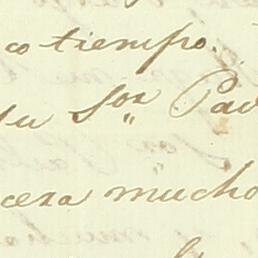 co tiempo.
su Sor. Pa
cera mucho